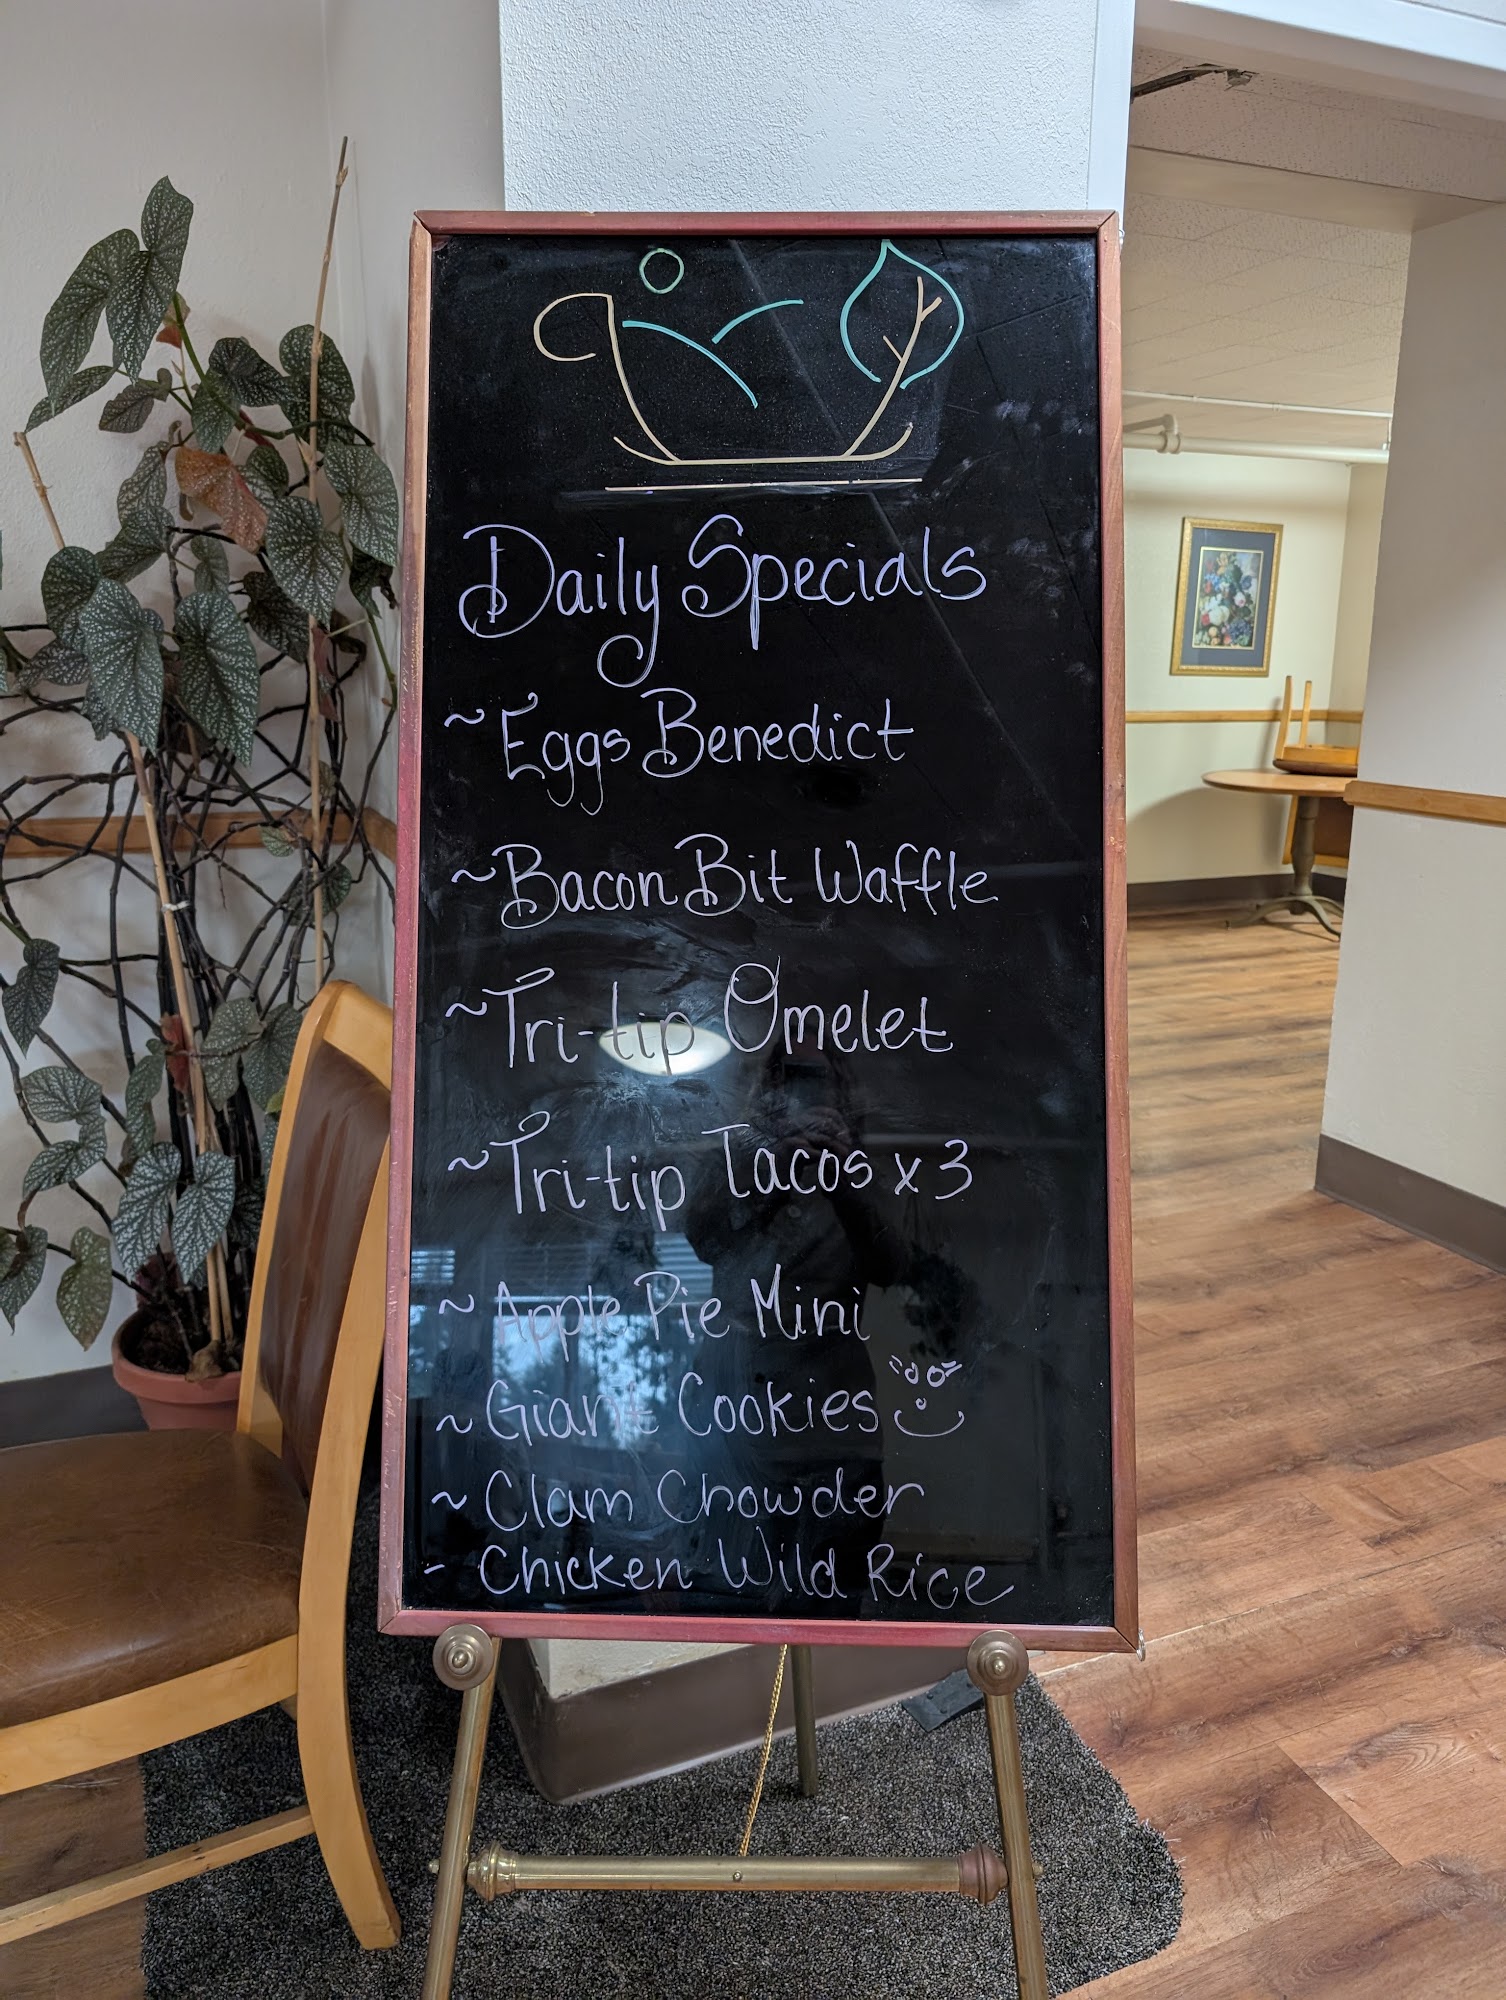 Daily Specials
~ Eggs Benedict
~ Bacon Bit Waffle
~ Tri-tip Omelet
~ Tri-tip Tacos x 3
~ Apple Pie Mini
~ Giant Cookies
~ Clam Chowder
- Chicken Wild Rice